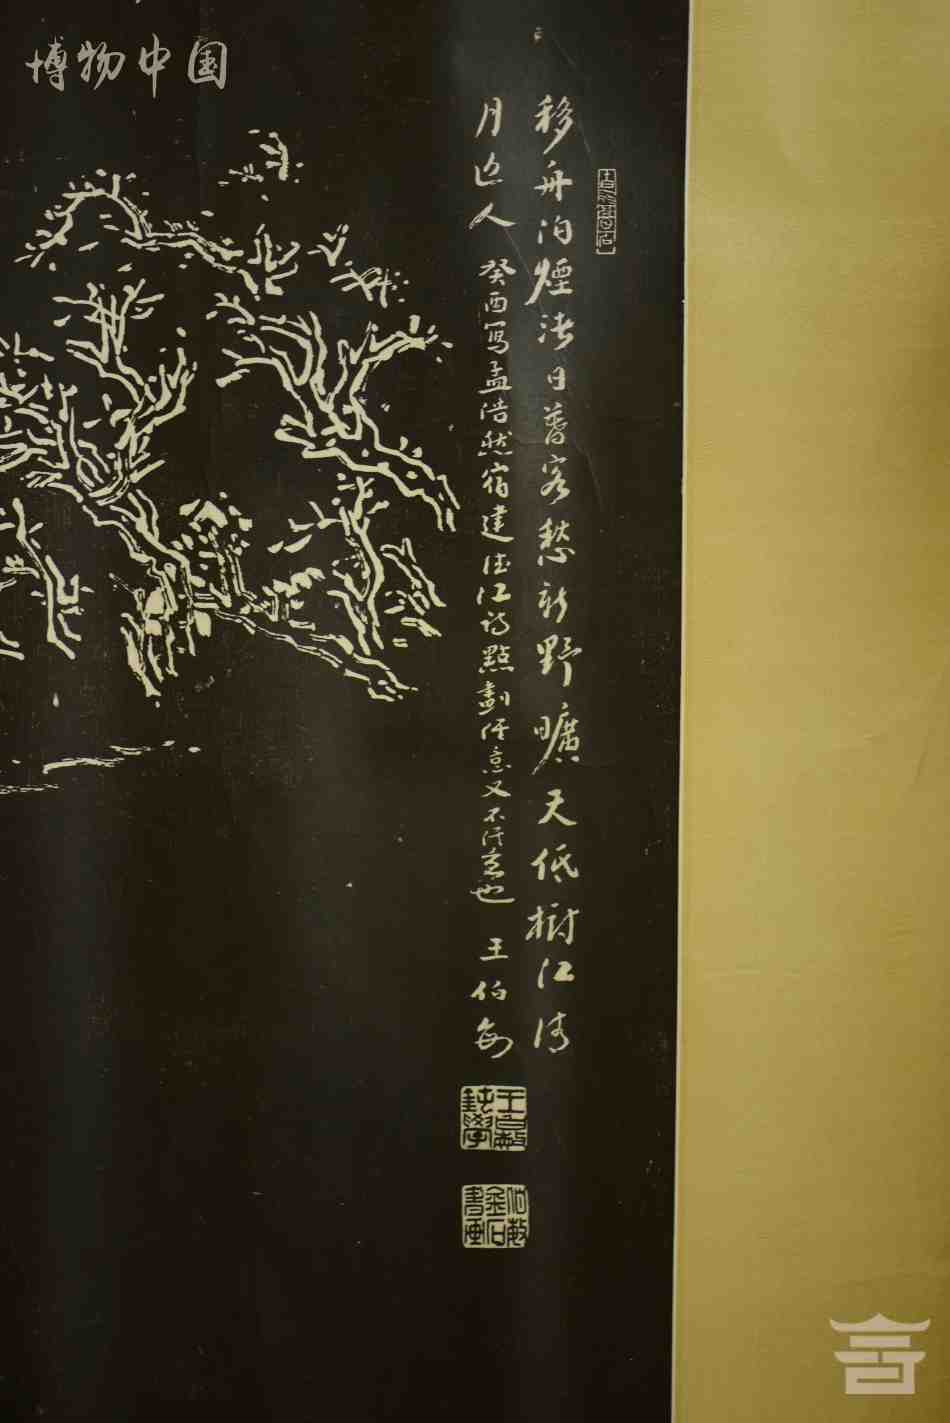 博物中国
移舟泊煙渚日暮客愁新野曠天低樹江清
月近人 癸酉寫孟浩然宿建德江詩點劃任意又不任意也 王伯敏
王伯敏鈢學
伯敏金石書画